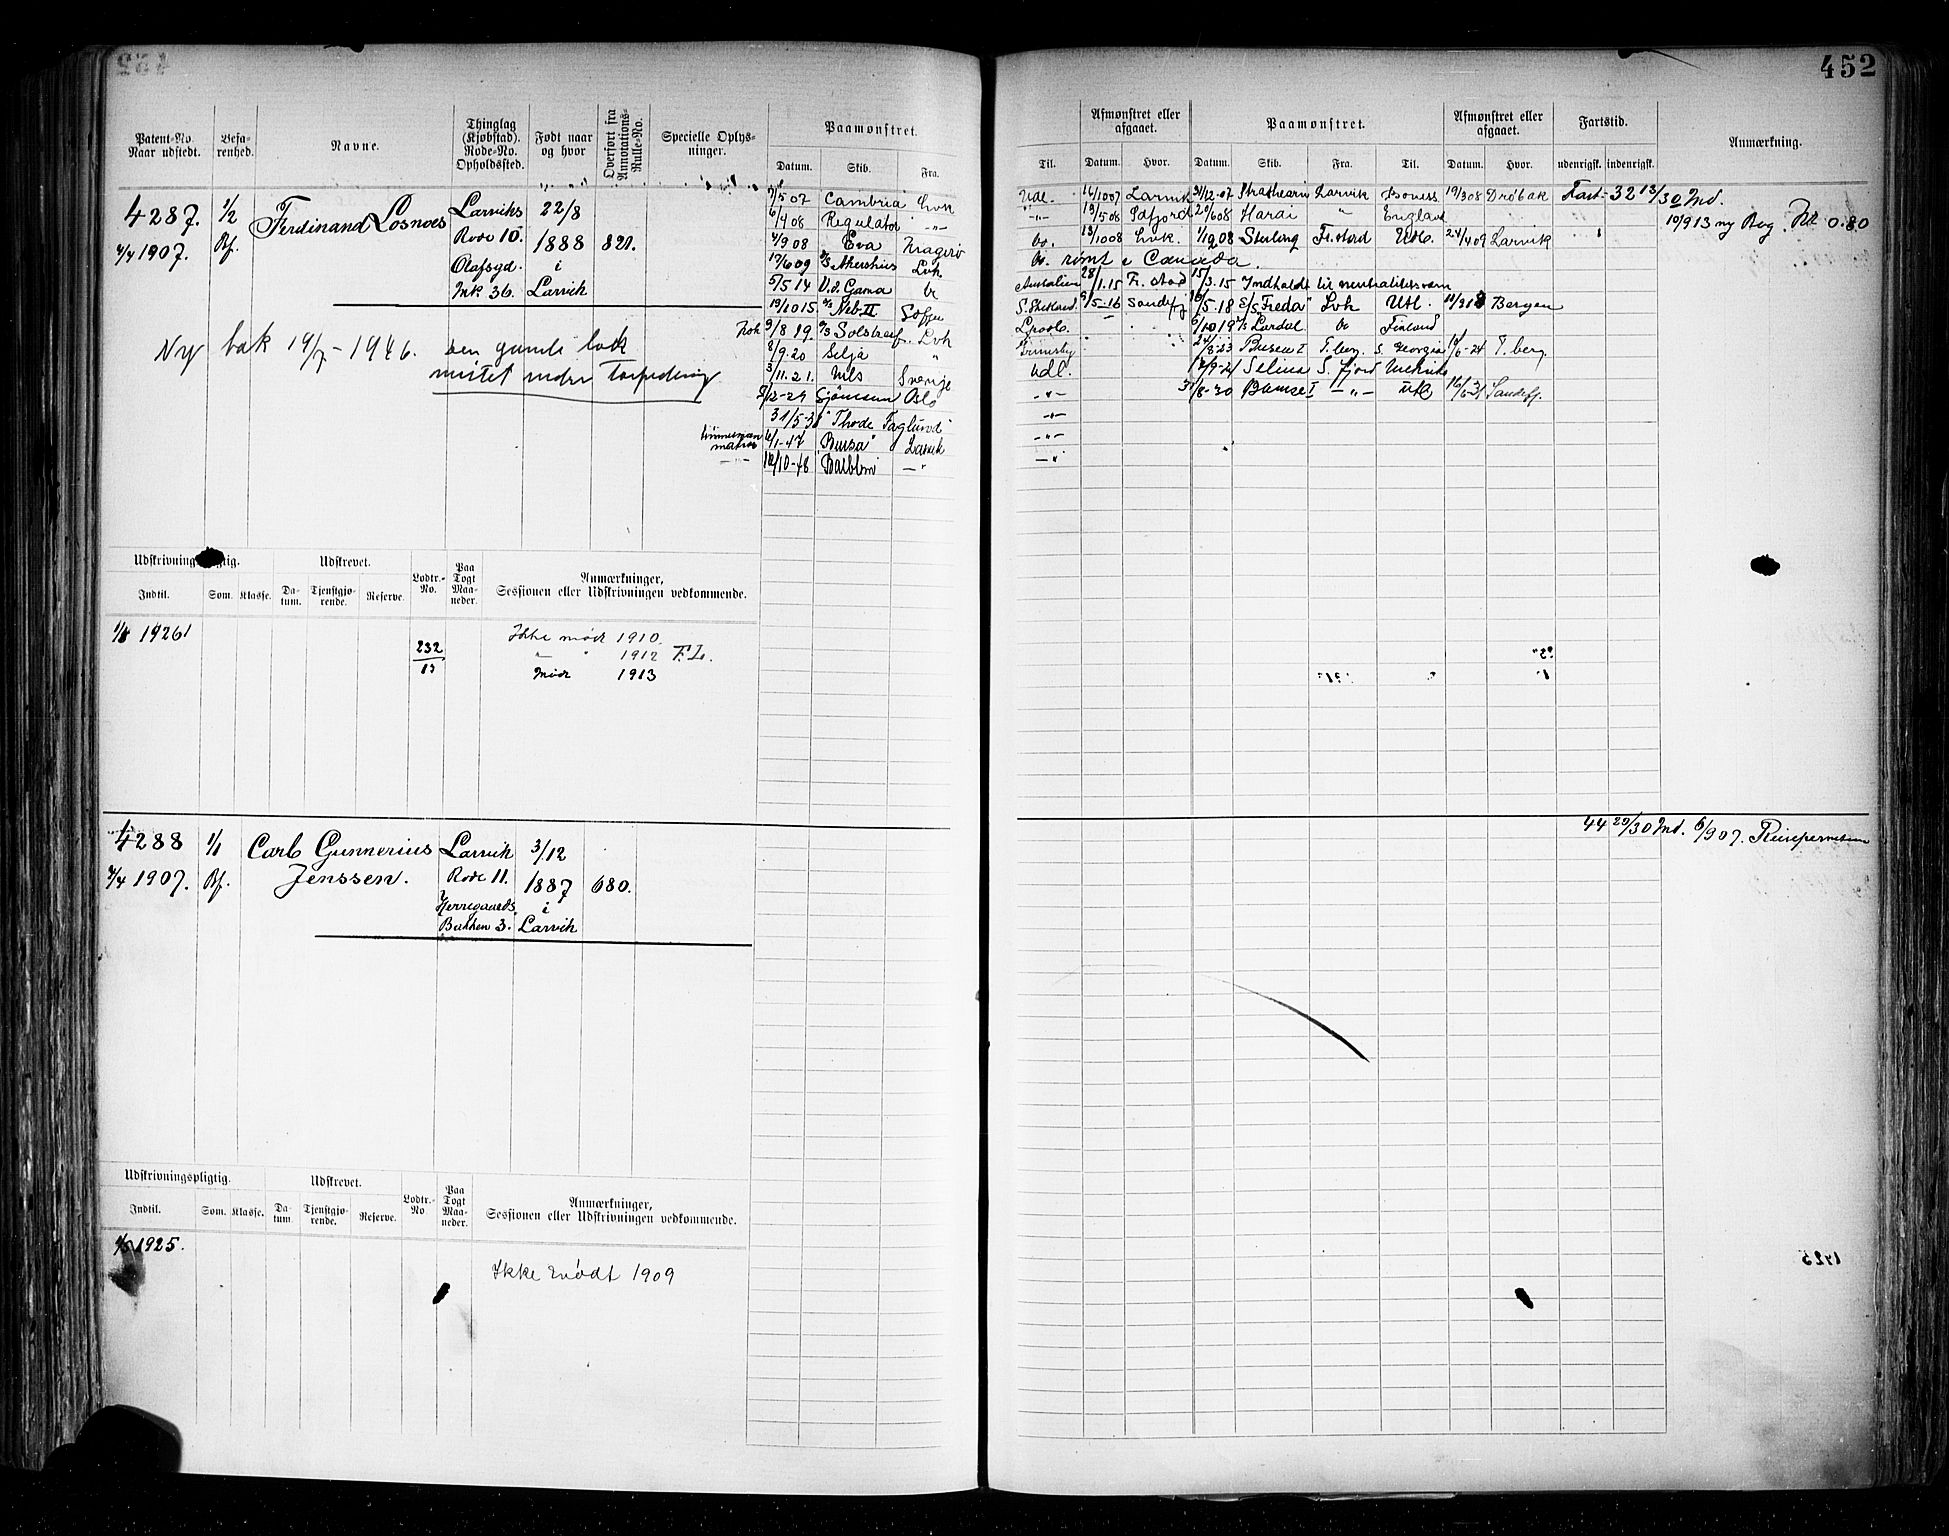 452
Patent-No. Naar udstedt.
Befa-renhed.
Navne.
Thinglag (Kjøbstad). Rode-No. Opholdssted.
Født naar og hvor
Overført fra Annotations-Rulle-No.
Specielle Oplys-ninger.
Paamønstret.
Datum. Skib. Fra.
4287. 1/2 Ferdinand Losnoes Larviks 22/8
4/4 1907. Bf. Rode 10. 1888 821.
Olafsgd. i
Mk 36. Larvik
Ny bok 19/7-1946. den gamle bok
mistet under Torpedering
7/5 07 Cambria Lvk
6/4 08 Regulator -"-
4/9 08 Eva Kragerø
17/6 09 Akershus Lvk
5/5 14 V.d. Gama do
19/10 15 Neb II
Kok 9/8 19. Solstreif Lvk
8/9.20 Silja "
3/11.21. Nils Sverige
/12-29 Sjømann Oslo
31/5-3 "Thode Faglund"
6/1-47 "Bursa" Larvik
12/10-48 "Balblom" -"-
Til.
Afmønstret eller afgaaet.
Datum. Hvor.
Paamønstret.
Datum. Skib. Fra. Til.
Afmønstret eller afgaaet.
Datum. Hvor.
Fartstid.
udenrigsk. indenrigsk.
Anmærkning.
Udl. 16/10 07 Larvik 31/12-07 Strathearn Larvik Boness 19/3 08 Drøbak Fart- 32 13/30 Md.
-"- 19/5 08 Sdfjord 20/6 08 Harai " England 10/9 13 ny Bog. Bet 0.80
do. 13/10 08 Lvk. 1/12 08 Sterling Fr.stad Udl. 24/4 09 Larvik
do. rømt i Canada
Australien 28/1.15 Fr.stad 15/3.15 Indholdt til neutralitetsvern
S. Shetland 9/5-16 Sandefj /5.18 S/S "Freda" Lvk Utl. 11/9 18 Bergen
Lpools. 6/10 19 Lardal do Finland
Grimsby 24/8-23 Busen I T.berg. S. Georgia /6-24 T.berg.
Udl. /9-24 Selina S.fjord
-"- /8-30 Busen I -"- Utl. 16/6-31 Sandefj.
-"-
-"-
-"-
Udskrivningspligtig. Udskrevet.
Indtil. Som. Klasse. Da-tum. Tjenstgjø-rende. Reserve.
Lodtr.-No.
Paa Togt Maa-neder.
Anmærkninger, Sessionen eller Udskrivningen vedkommende.
1/5 1926 Ikke mødt 1910.
232 " " 1912 F.L.
13 Mødt 1913
4288 1/1 Carb Gunnerius Larvik 3/12 44 29/30 Md. 6/9 07.
4/4 1907. Bf. Jenssen. Rode 11. 1887 680.
Herregaards i
Bakken 3. Larvik
Udskrivningspligtig. Udskrevet.
Indtil. Som. Klasse. Da-tum. Tjenstgjø-rende. Reserve.
Lodtr.-No
Paa Togt Maa-neder.
Anmærkninger, Sessionen eller Udskrivningen vedkommende.
1/5 1925.
Ikke mødt 1909